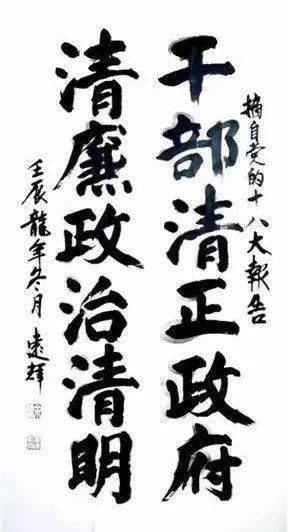 摘自党的十八大報告
干部清正政府
清廉政治清明
壬辰龍年冬月
遠輝